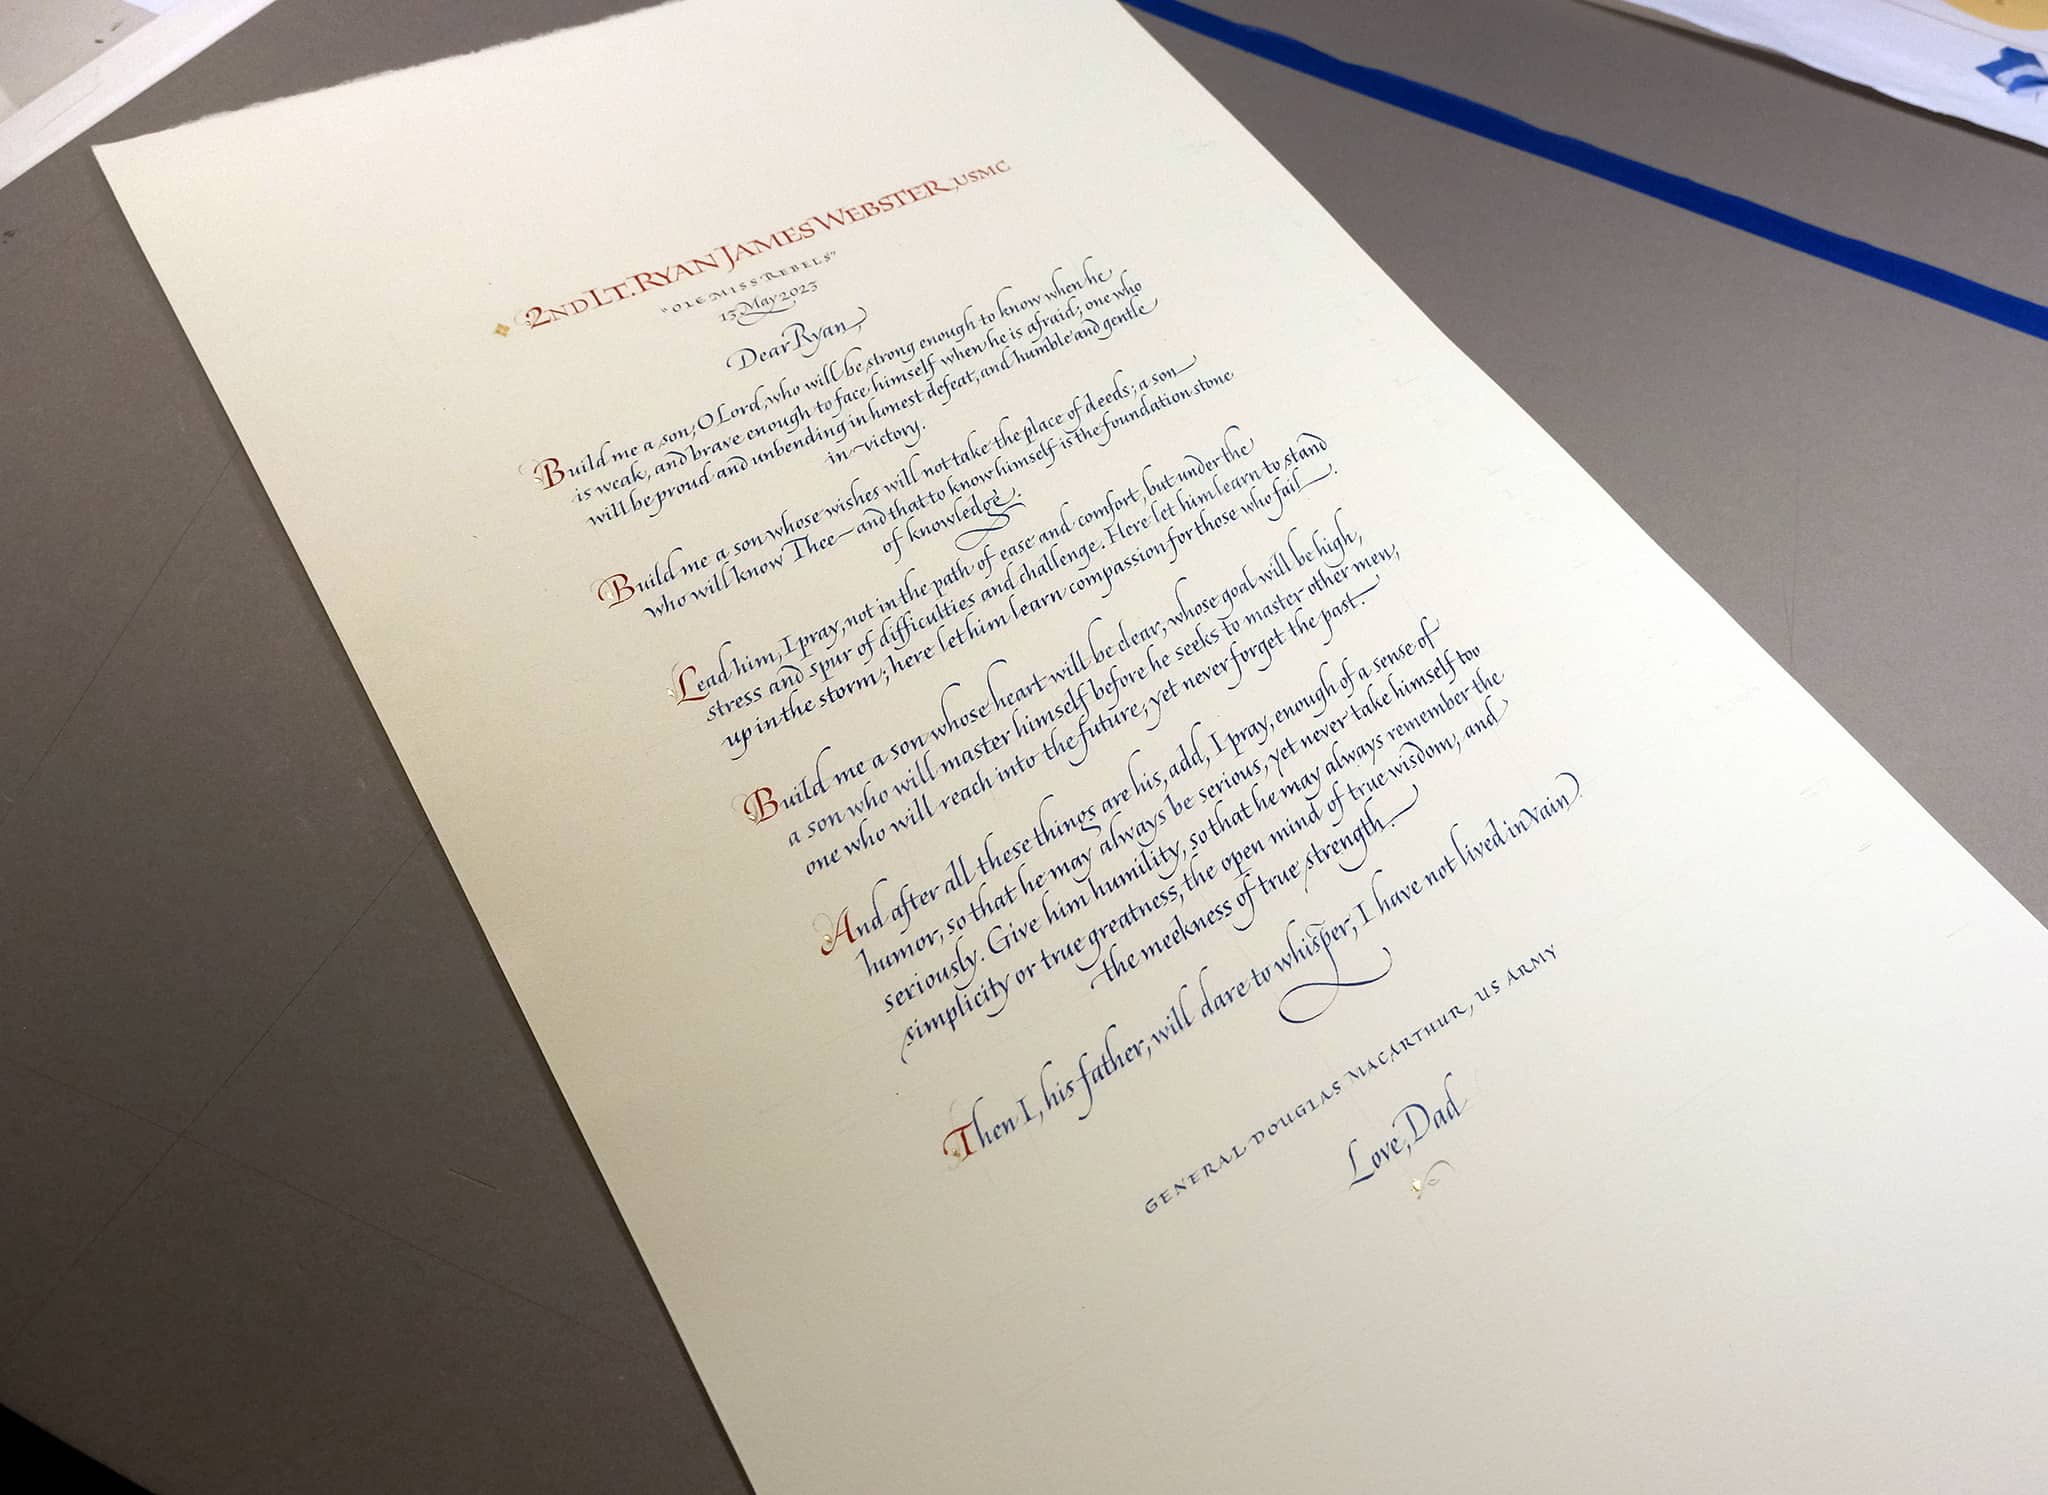 2ND LT. RYAN JAMES WEBSTER, USMC
"OLE MISS REBELS"
13 May 2023
Dear Ryan,
Build me a son, O Lord, who will be strong enough to know when he
is weak, and brave enough to face himself when he is afraid; one who
will be proud and unbending in honest defeat, and humble and gentle
in victory.
Build me a son whose wishes will not take the place of deeds; a son
who will know Thee — and that to know himself is the foundation stone
of knowledge.
Lead him, I pray, not in the path of ease and comfort, but under the
stress and spur of difficulties and challenge. Here let him learn to stand
up in the storm; here let him learn compassion for those who fail.
Build me a son whose heart will be clear, whose goal will be high,
a son who will master himself before he seeks to master other men,
one who will reach into the future, yet never forget the past.
And after all these things are his, add, I pray, enough of a sense of
humor, so that he may always be serious, yet never take himself too
seriously. Give him humility, so that he may always remember the
simplicity or true greatness, the open mind of true wisdom, and
the meekness of true strength.
Then I, his father, will dare to whisper, I have not lived in vain.
GENERAL DOUGLAS MACARTHUR, US ARMY
Love, Dad